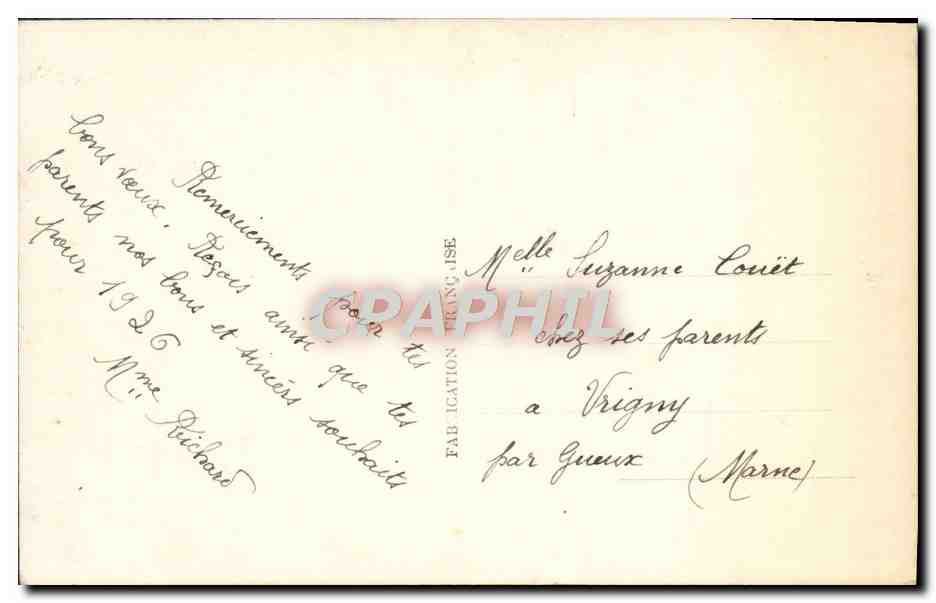 Remerciements pour tes
bons vœux. Reçois ainsi que tes
parents nos bons et sincers souhaits
pour 1926
Mme Richard
FABRICATION FRANÇAISE
Melle Suzanne Couët
chez ses parents
a Vrigny
par Gueux (Marne)
CPAPHIL